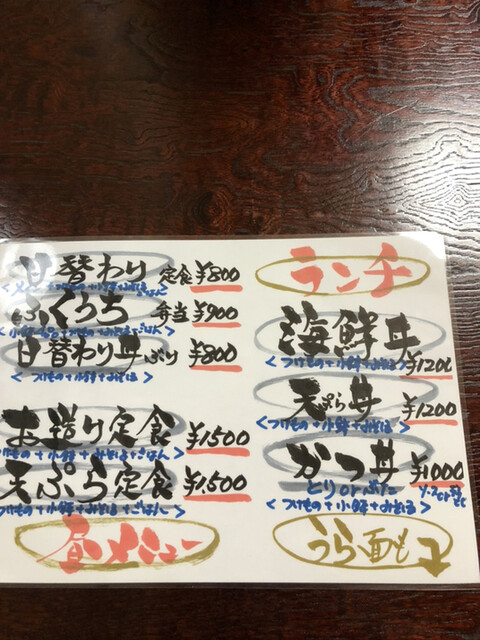 ランチ
海鮮丼 ¥1200
<つけもの+小鉢+みそしる>
天ぷら丼 ¥1200
<つけもの+小鉢+みそしる>
かつ丼 ¥1000
とりorぶた
<つけもの+小鉢+みそしる>
うら面も
日替わり定食 ¥800
ふくうち弁当 ¥900
日替わり丼ぶり ¥800
<つけもの+小鉢+みそしる>
お造り定食 ¥1500
つけもの+小鉢+みそしる+ごはん>
天ぷら定食 ¥1,500
つけもの+小鉢+みそしる+ごはん>
昼メニュー